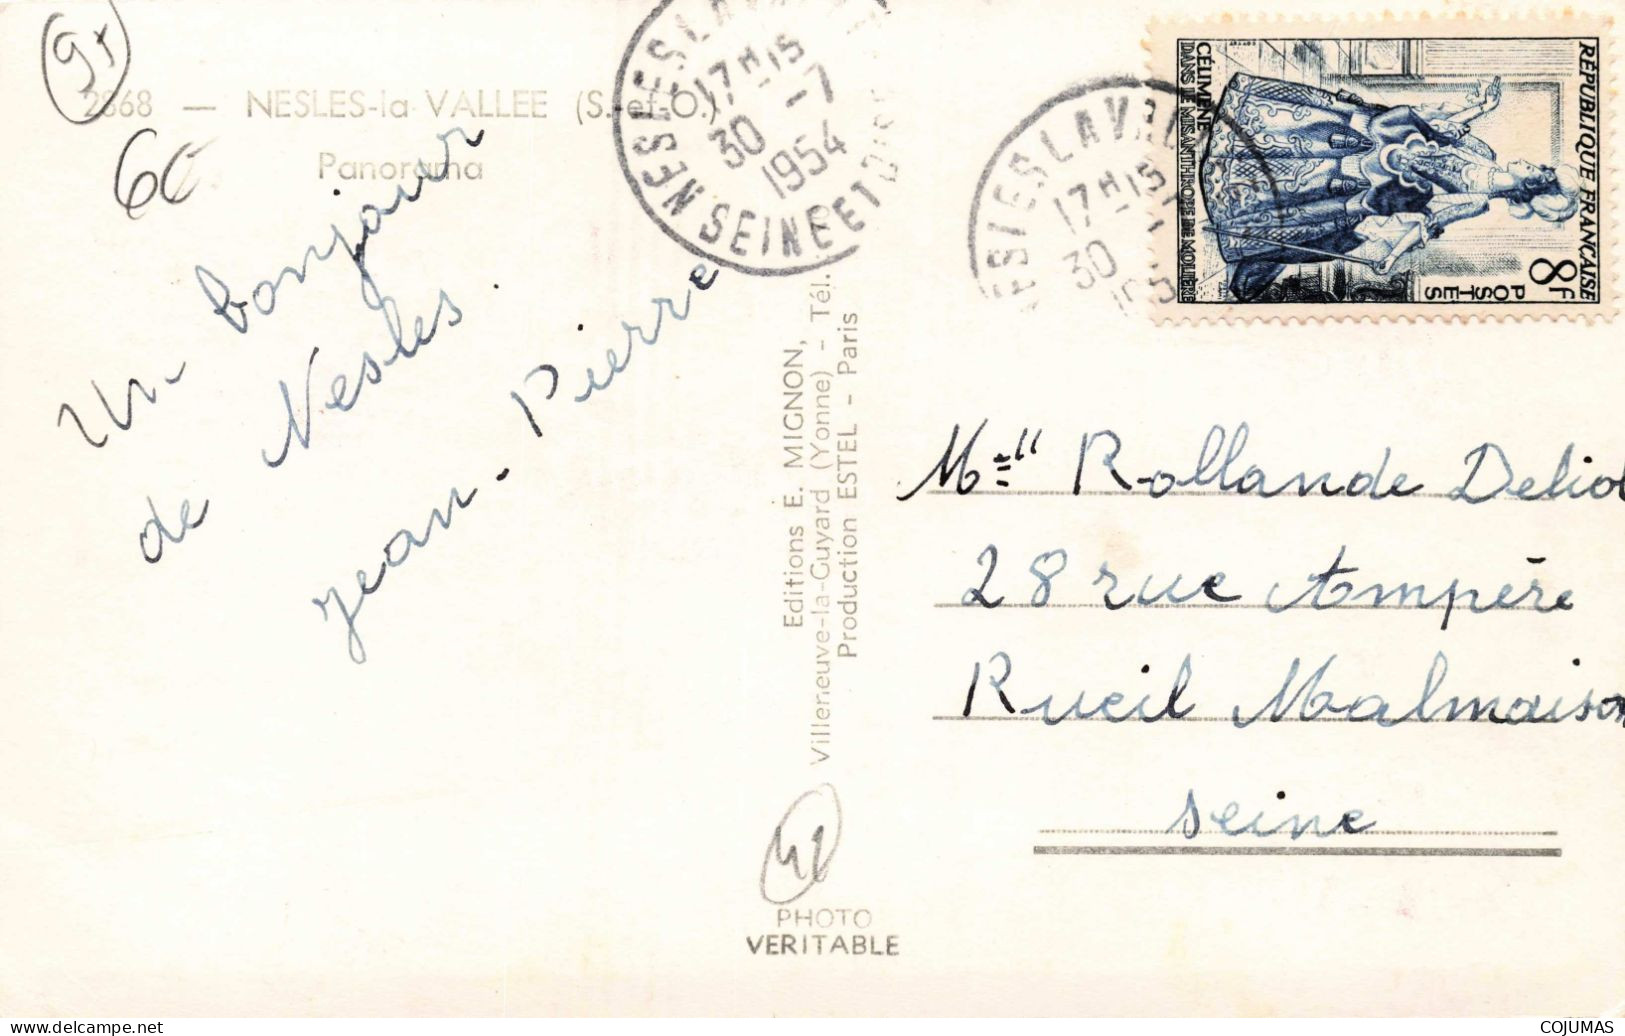 9x
2868 — NESLES-la VALLEE (S.-et-O.)
Panorama
6€
Un bonjour
de Nesles.
jean-Pierre
NESLES LA VALLEE
17H15
30 -7
1954
SEINE ET OISE
NESLES LA VALLEE
17H15
30
195
RÉPUBLIQUE FRANÇAISE
8F
POSTES
CÉLIMÈNE
DANS LE MISANTHROPE DE MOLIÈRE
Editions E. MIGNON,
Villeneuve-la-Guyard (Yonne) - Tél.
Production ESTEL - Paris
Melle Rollande Deliot
28 rue Ampère
Rueil Malmaison
Seine
PHOTO
VERITABLE
www.delcampe.net
COJUMAS